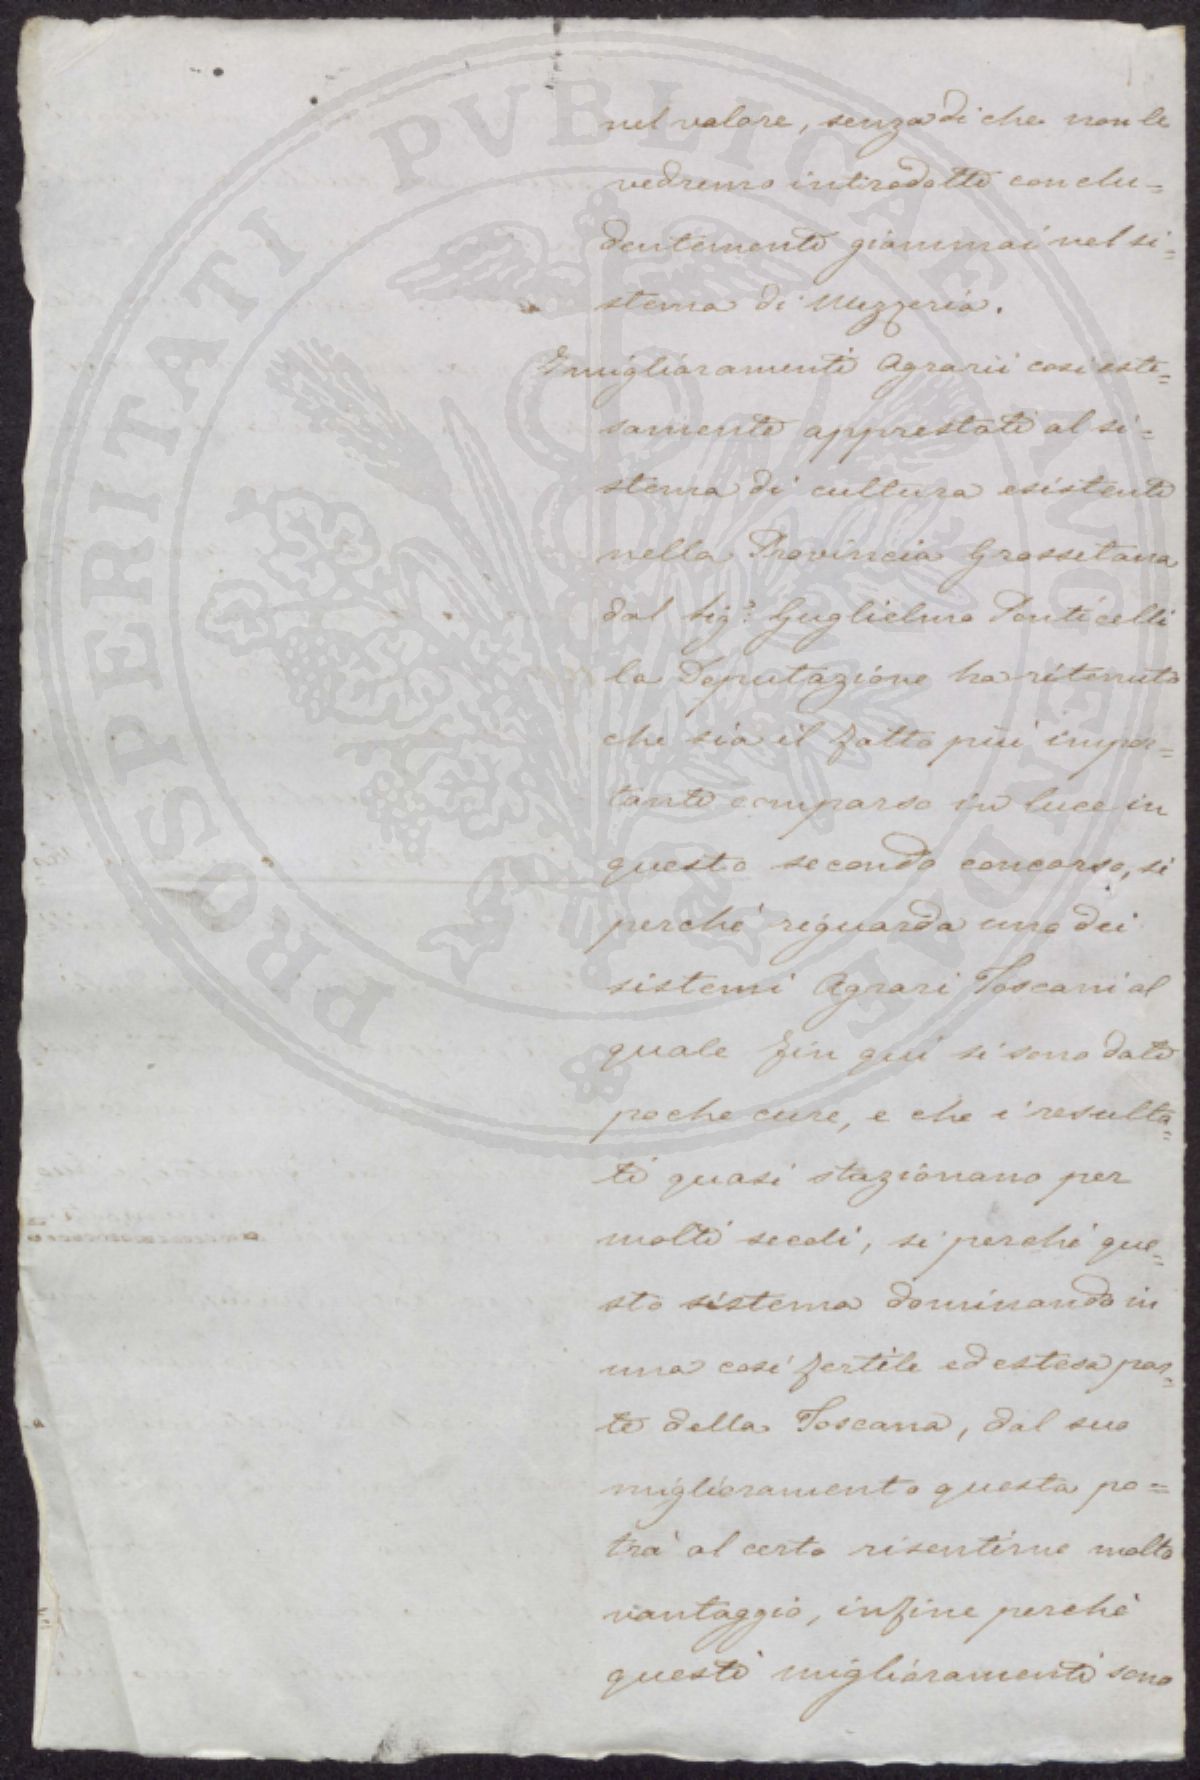 PROSPERITATI PVBLICAE AVGENDAE
nel valore, senza di che non le
vedremo introdotte conclu=
dentemente giammai nel si=
stema di Mezzeria.
I miglioramenti Agrarii così este=
samente apprestati al si=
stema di cultura esistente
nella Provincia Grossetana
dal Sig.r Guglielmo Ponticelli
la Deputazione ha ritenuto
che sia il fatto più impor=
tante comparso in luce in
questo secondo concorso, si
perchè riguarda uno dei
sistemi Agrari Toscani al
quale fin qui si sono date
poche cure, e che i resulta=
ti quasi stazionano per
molti secoli, si perchè que=
sto sistema dominando in
una così fertile ed estesa par=
te della Toscana, dal suo
miglioramento questa po=
trà al certo risentirne molto
vantaggio, infine perchè
questi miglioramenti sono